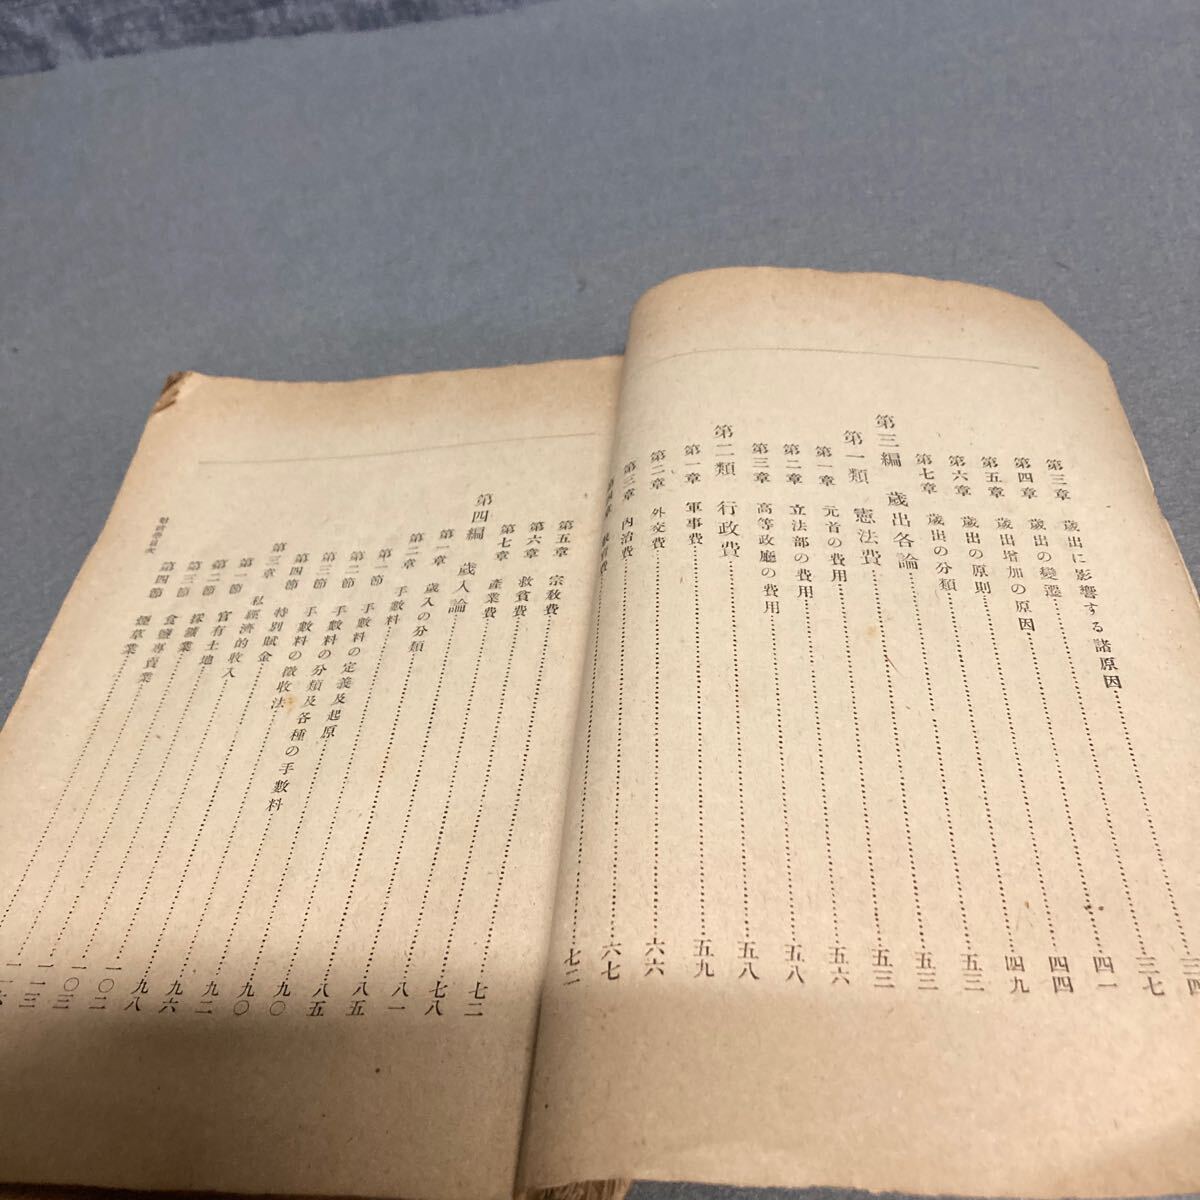 第三章 歳出に影響する諸原因……三四
第四章 歳出の變遷……三七
第五章 歳出増加の原因……四一
第六章 歳出の原則……四四
第七章 歳出の分類……四九
第三編 歳出各論……五三
第一類 憲法費……五三
第一章 元首の費用……五三
第二章 立法部の費用……五六
第三章 高等政廳の費用……五八
第二類 行政費……五八
第一章 軍事費……五九
第二章 外交費……六六
第三章 内治費……六七
第四章 教育費……七二
第五章 宗教費……七二
第六章 救貧費……七八
第七章 産業費……八一
第四編 歳入論……八五
第一章 歳入の分類……八五
第二章 手數料……九〇
第一節 手數料の定義及起原……九〇
第二節 手數料の分類及各種の手數料……九二
第三節 手數料の徴收法……九六
第四節 特別賦金……九八
第三章 私經濟的收入……一〇二
第一節 官有土地……一〇三
第二節 採鑛業……一一三
第三節 食鹽專賣業……一一六
第四節 煙草業……
財政學目次